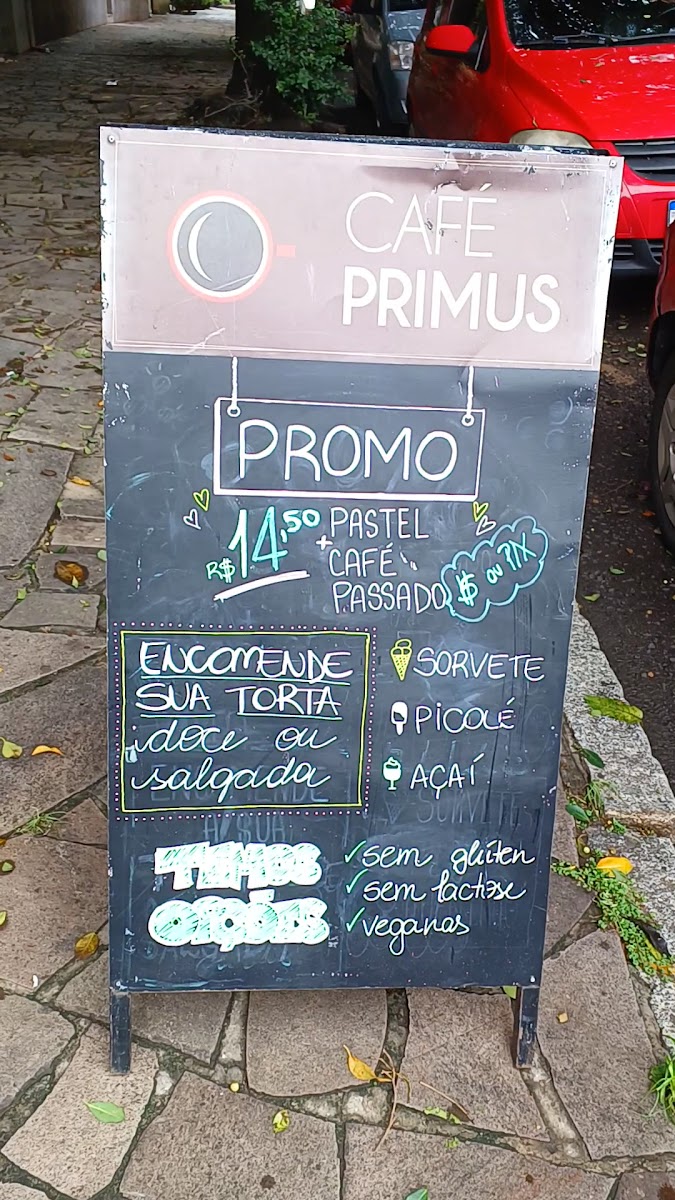 CAFÉ
PRIMUS
PROMO
R$ 14,50 + PASTEL
CAFÉ
PASSADO
$ ou PIX
ENCOMENDE
SUA TORTA
doce ou
salgada
SORVETE
PICOLÉ
AÇAÍ
TEMOS
OPÇÕES
✓sem glúten
✓sem lactose
✓veganas